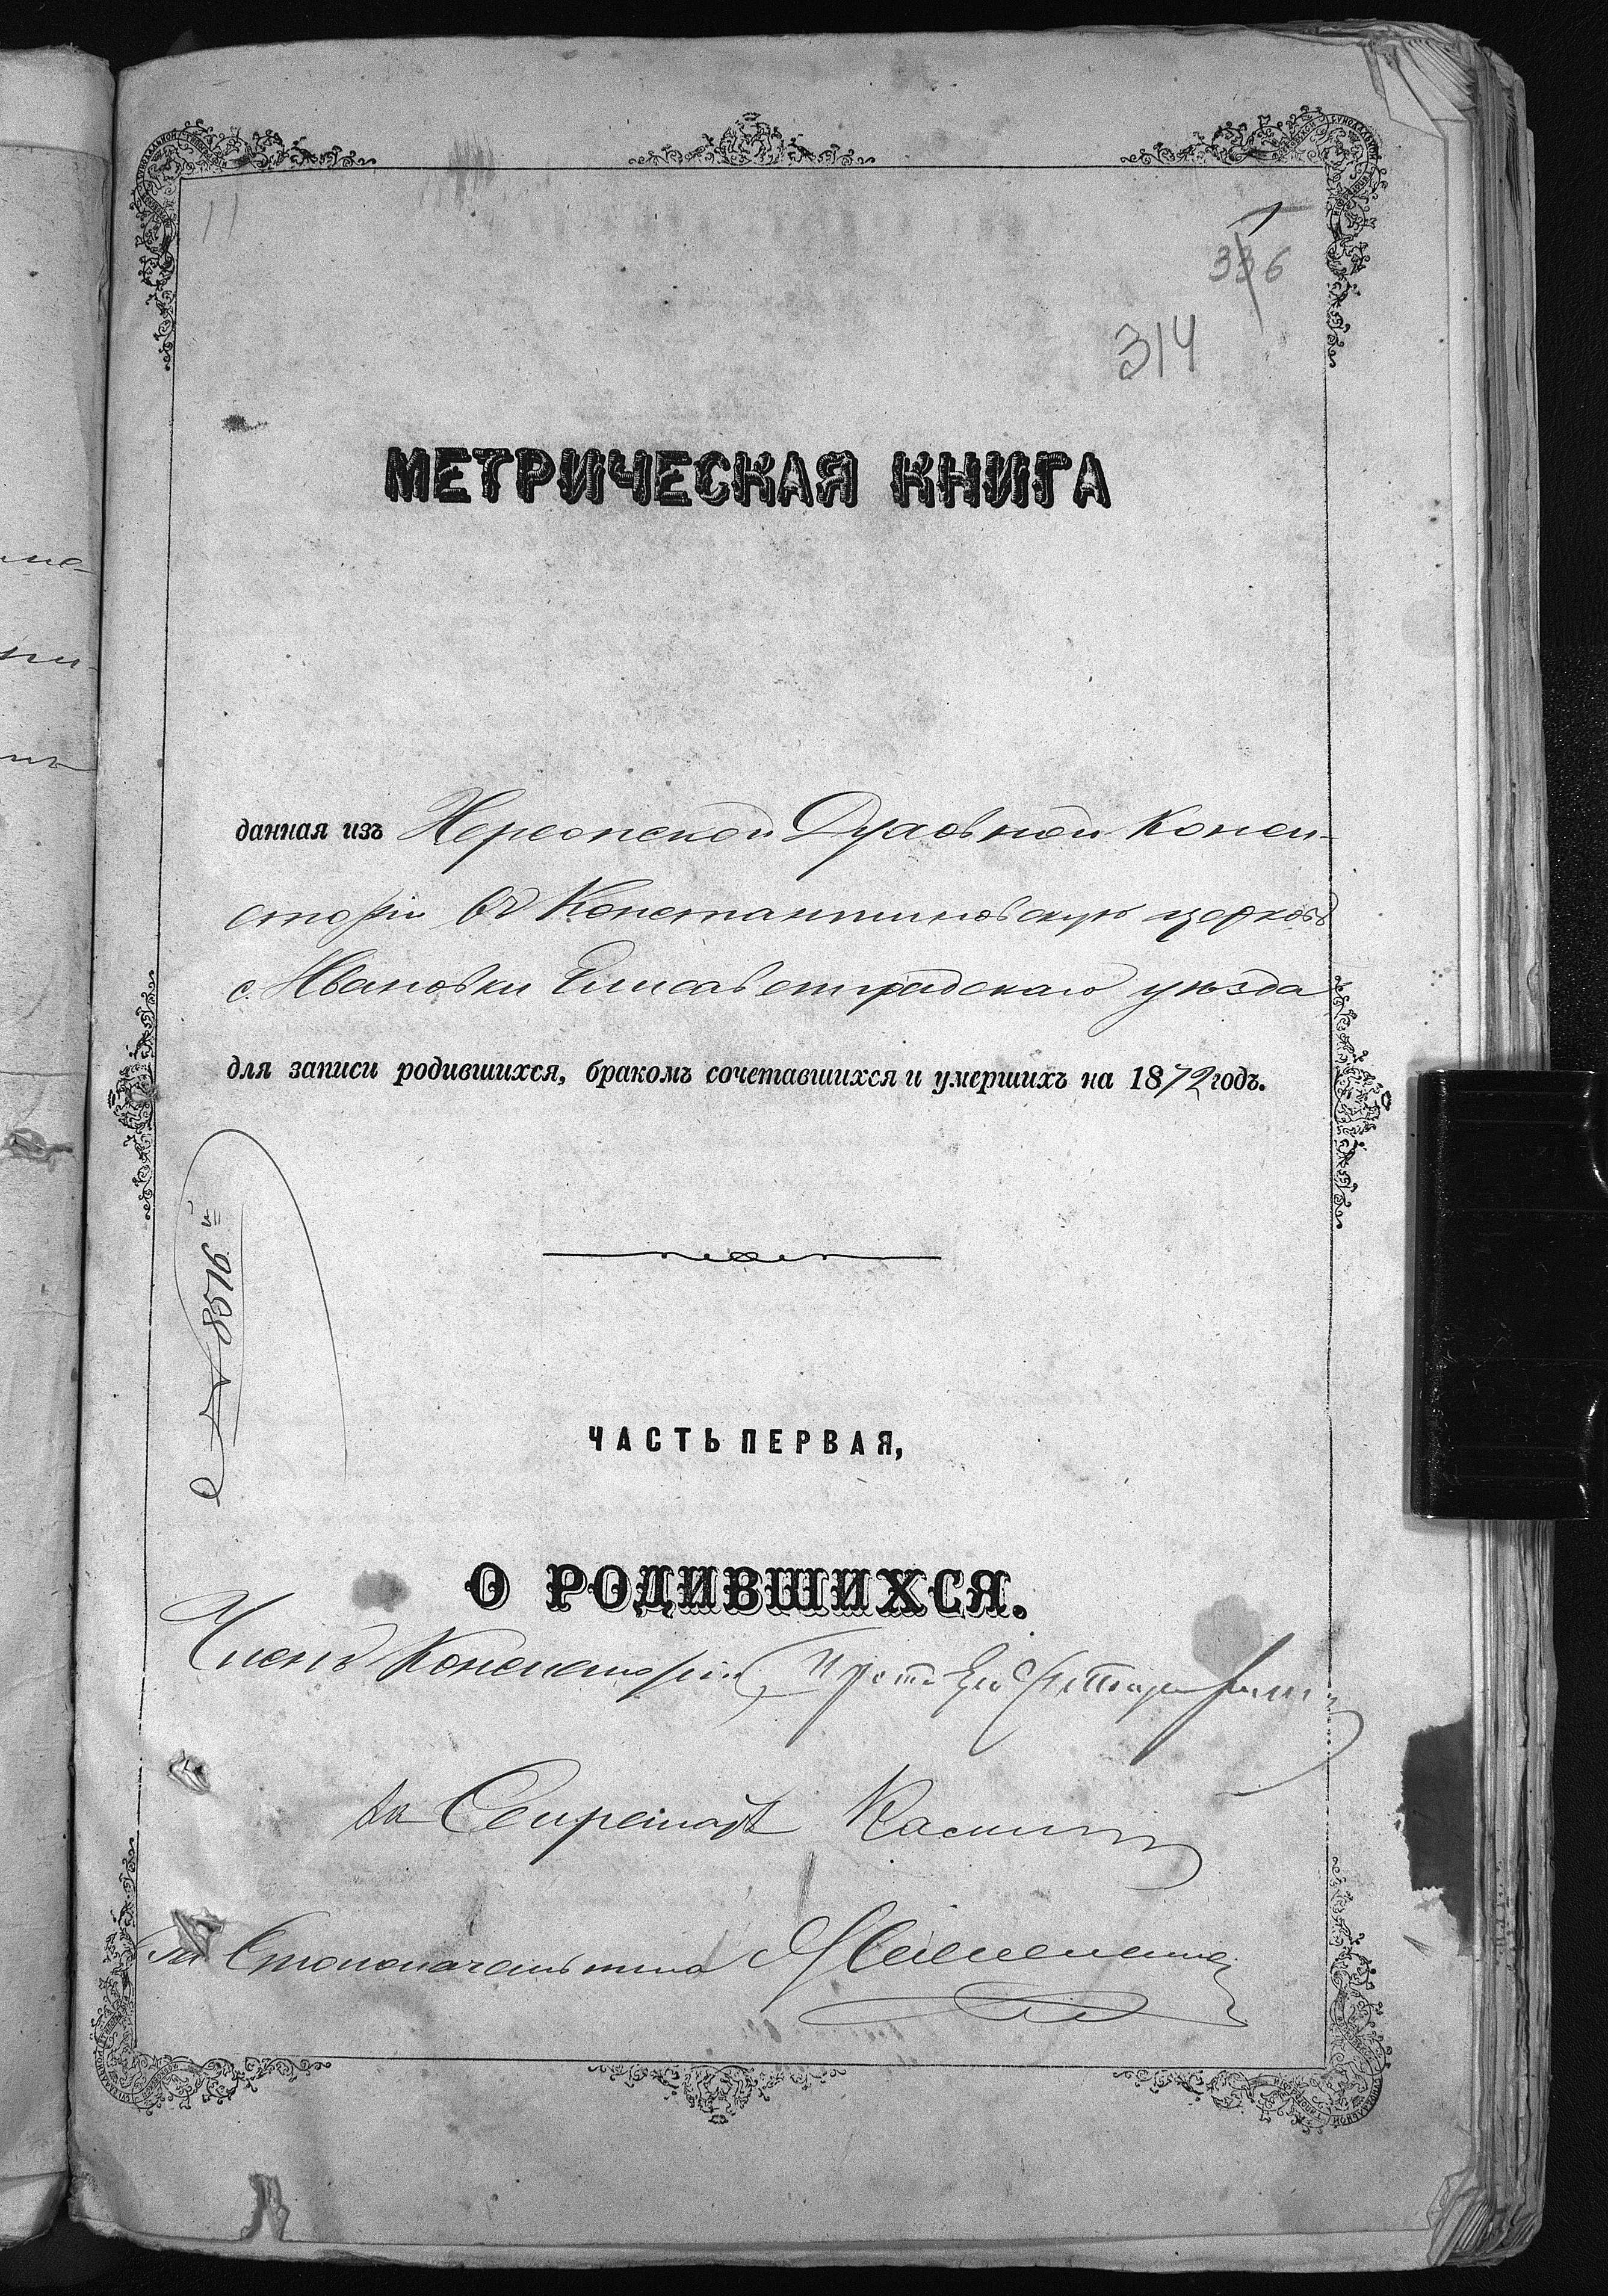 1
336
314
МЕТРИЧЕСКАЯ КНИГА
данная изъ Херсонской Духовной Конси-
сторіи въ Константиновскую церковь
с. Ивановки Елисаветградскаго уѣзда
для записи родившихся, бракомъ сочетавшихся и умершихъ на 1872 годъ.
ЧАСТЬ ПЕРВАЯ,
О РОДИВШИХСЯ.
Членъ Консисторіи
За Секретаря
За Столоначальника